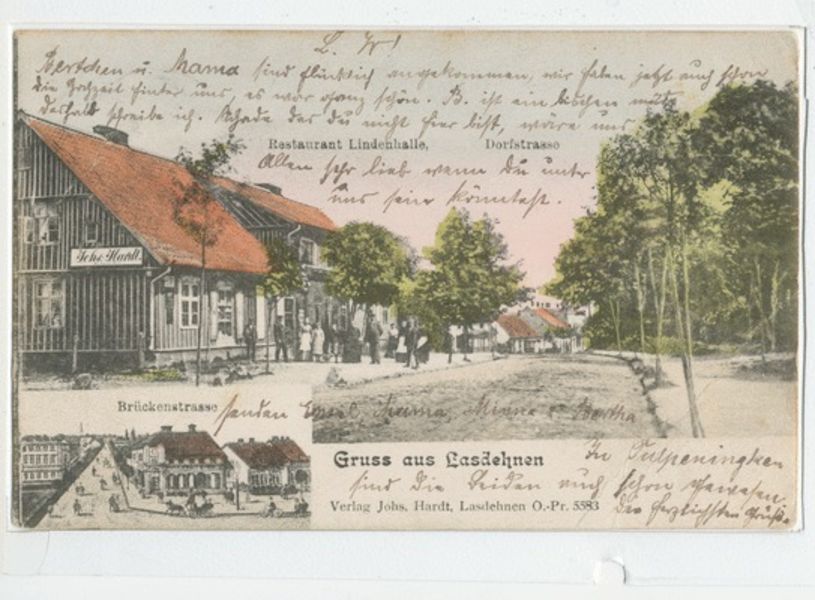 L. W!
Bertchen u. Mama sind glücklich angekommen, wir haben jetzt auch schon
die Hochzeit hinter uns, es war ganz schön. B. ist ein bischen müde
deshalb schreibe ich. Schade das du nicht hier bist, wäre uns
Restaurant Lindenhalle, Dorfstrasse
Allen sehr lieb wenn du unter
uns sein könntest.
Johs. Hardt.
Brückenstrasse
senden Mama, Minna u Bertha
Gruss aus Lasdehnen
In Tulpeningken
sind die beiden auch schon gewesen
Verlag Johs. Hardt, Lasdehnen O.-Pr. 5583
Die herzlichsten Grüße